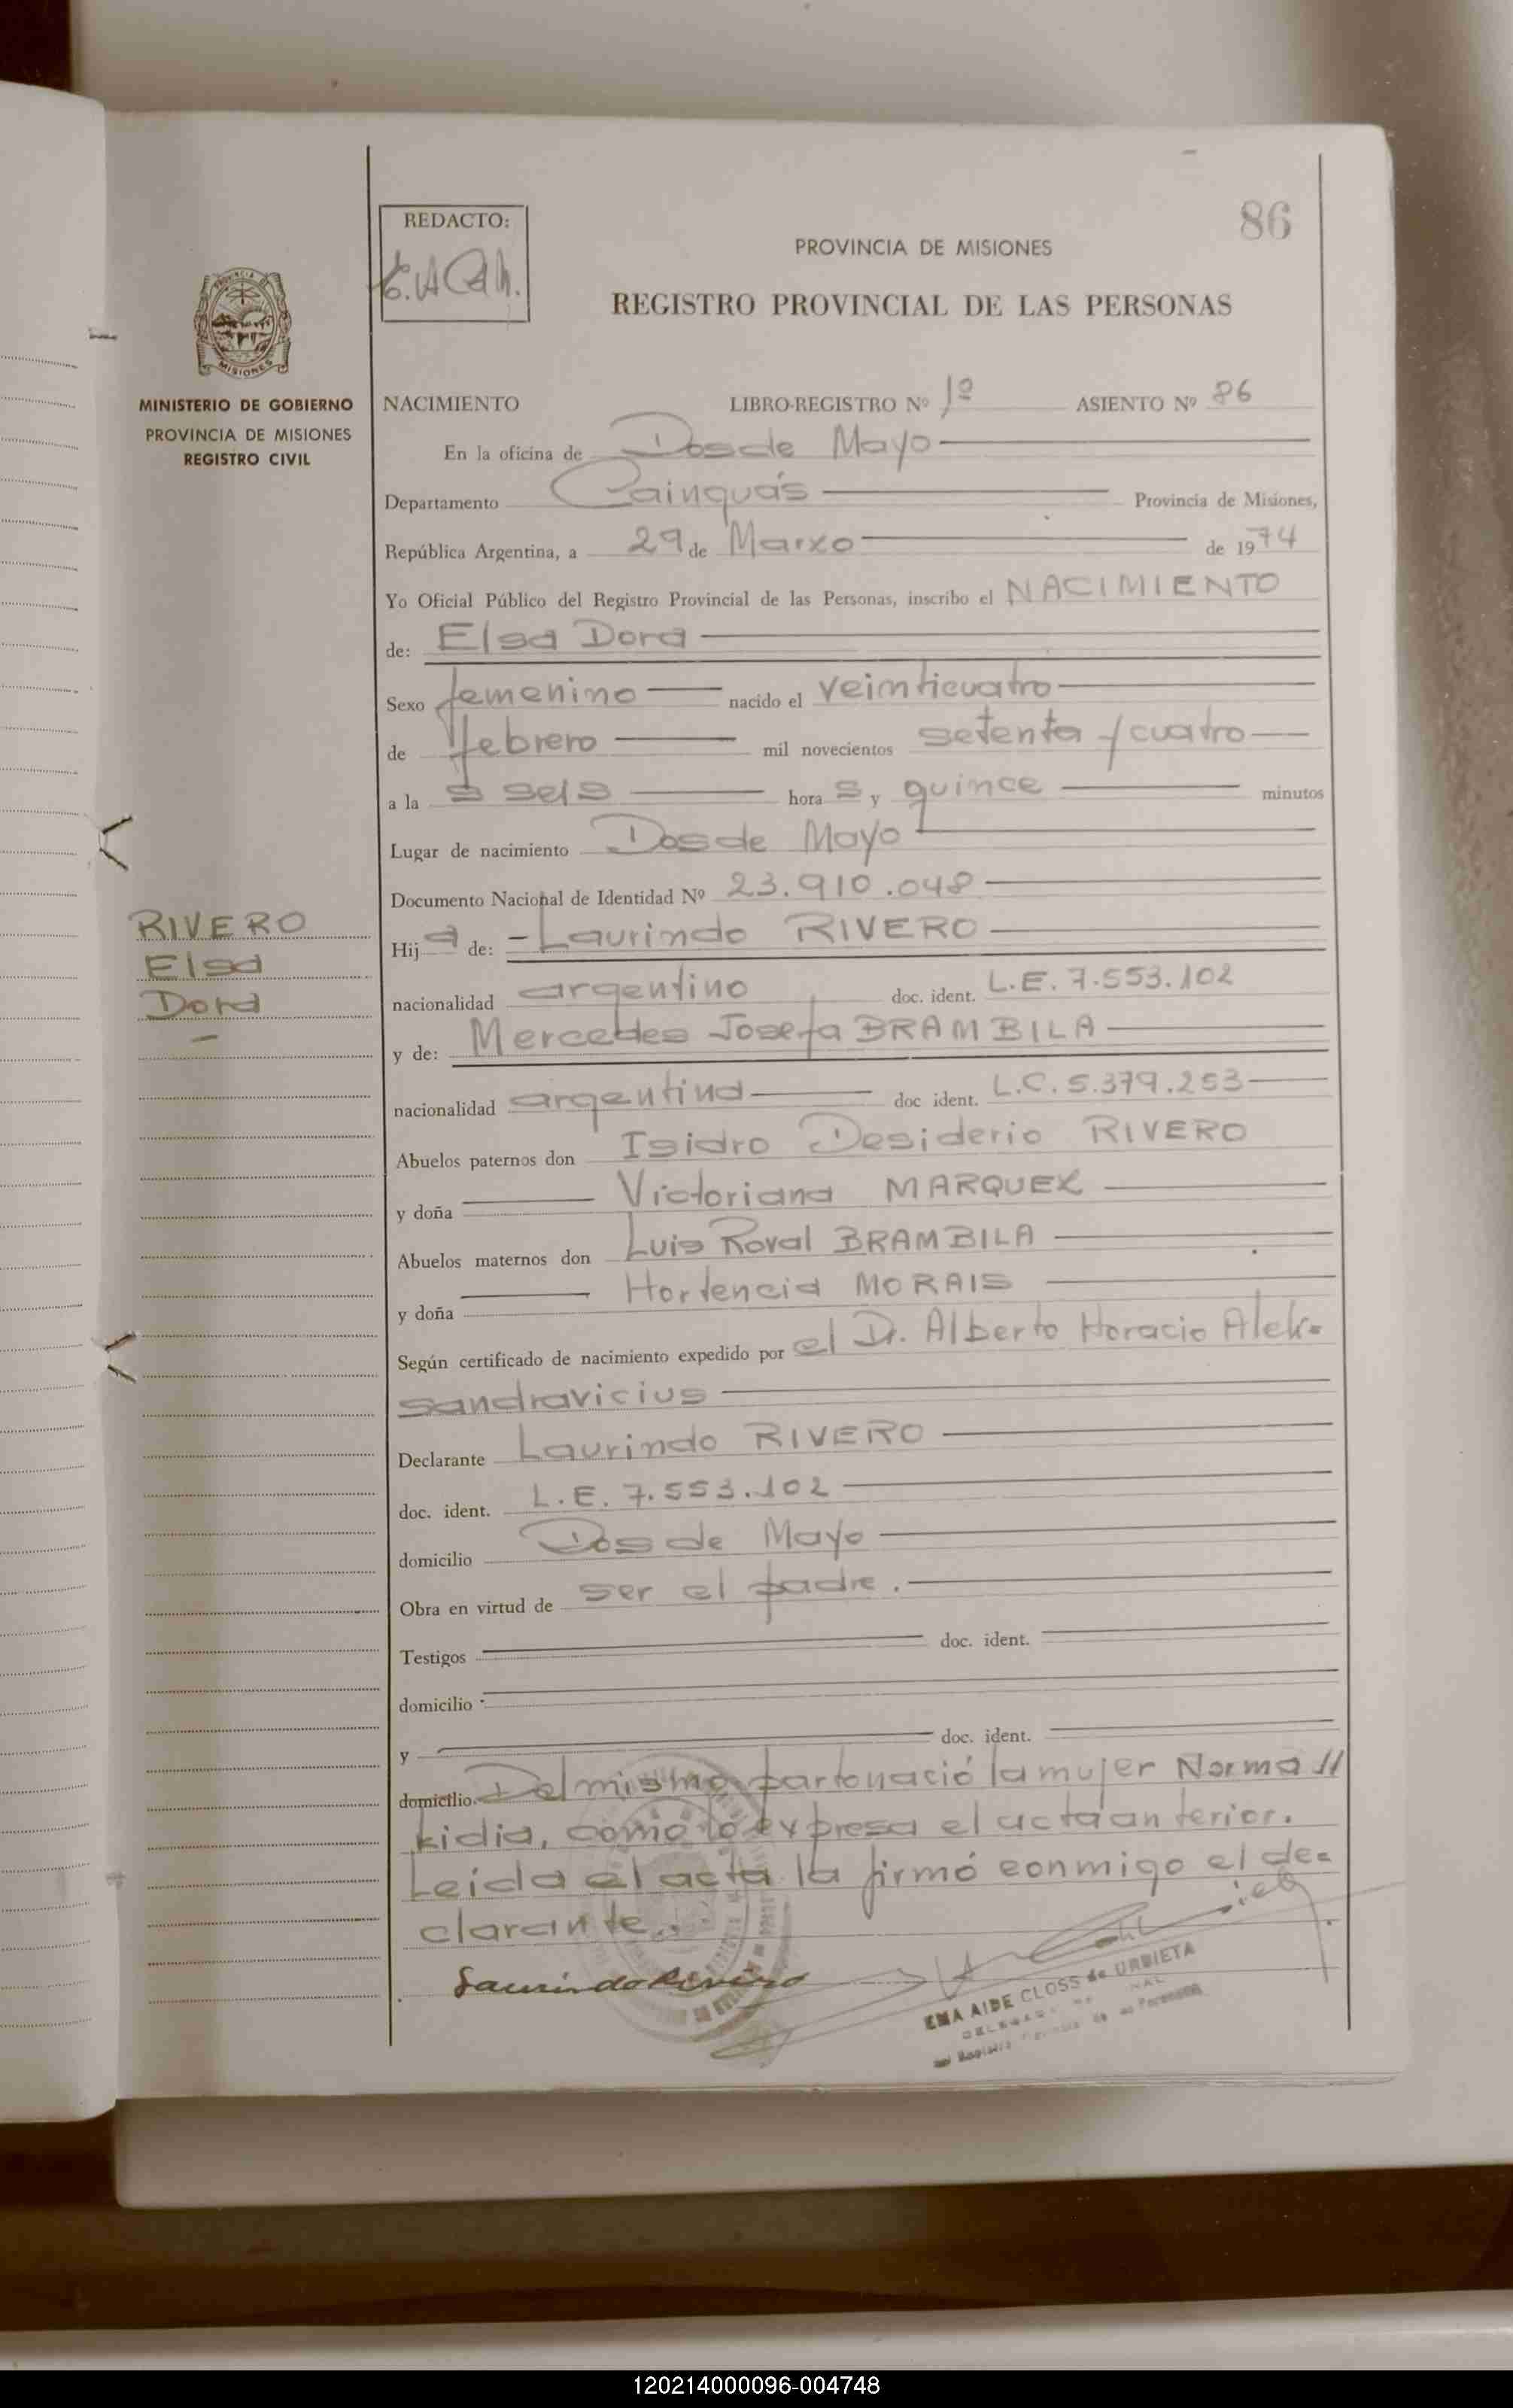 86
REDACTO:
PROVINCIA DE MISIONES
REGISTRO PROVINCIAL DE LAS PERSONAS
MISIONES
MINISTERIO DE GOBIERNO
PROVINCIA DE MISIONES
REGISTRO CIVIL
NACIMIENTO LIBRO-REGISTRO Nº 1º ASIENTO Nº 86
En la oficina de Dos de Mayo
Departamento Cainguás Provincia de Misiones,
República Argentina, a 29 de Marzo de 1974
Yo Oficial Público del Registro Provincial de las Personas, inscribo el NACIMIENTO
de: Elsa Dora
Sexo femenino nacido el veinticuatro
de febrero mil novecientos setenta y cuatro
a las seis horas y quince minutos
Lugar de nacimiento Dos de Mayo
Documento Nacional de Identidad Nº 23.910.048
RIVERO
Elsa
Dora
Hija de: - Laurindo RIVERO
nacionalidad argentino doc. ident. L.E. 7.553.102
y de: Mercedes Josefa BRAMBILA
nacionalidad argentina doc ident. L.C. 5.379.253
Abuelos paternos don Isidro Desiderio RIVERO
y doña Victoriana MARQUEZ
Abuelos maternos don Luis Roval BRAMBILA
y doña Hortencia MORAIS
Según certificado de nacimiento expedido por el Dr. Alberto Horacio Alek-
sandravicius
Declarante Laurindo RIVERO
doc. ident. L.E. 7.553.102
domicilio Dos de Mayo
Obra en virtud de ser el padre.
Testigos doc. ident.
domicilio
y doc. ident.
domicilio Del mismo parto nació la mujer Norma //
Lidia, como lo expresa el acta anterior.
Leida el acta la firmó conmigo el de=
clarante.
Laurindo Rivero
EMA AIDE CLOSS de URBIETA
120214000096-004748